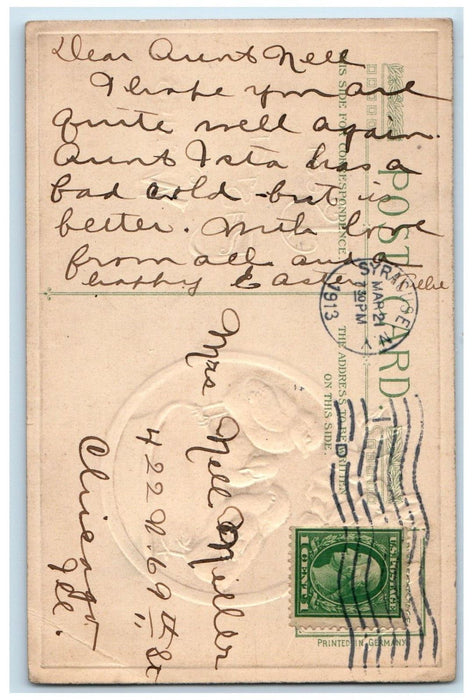 Dear Aunt Nell
I hope you are
quite well again.
Aunt Ista has a
bad cold - but is
better. With love
from all and a
happy Easter
POST CARD
THIS SIDE FOR CORRESPONDENCE
THE ADDRESS TO BE WRITTEN
ON THIS SIDE.
SYRACUSE
MAR 21
7:30 PM
1913
N.Y.
Mrs Nell Miller
422 N. 69th St
Chicago
Ill.
U.S. POSTAGE
1 CENT 1
PRINTED IN GERMANY